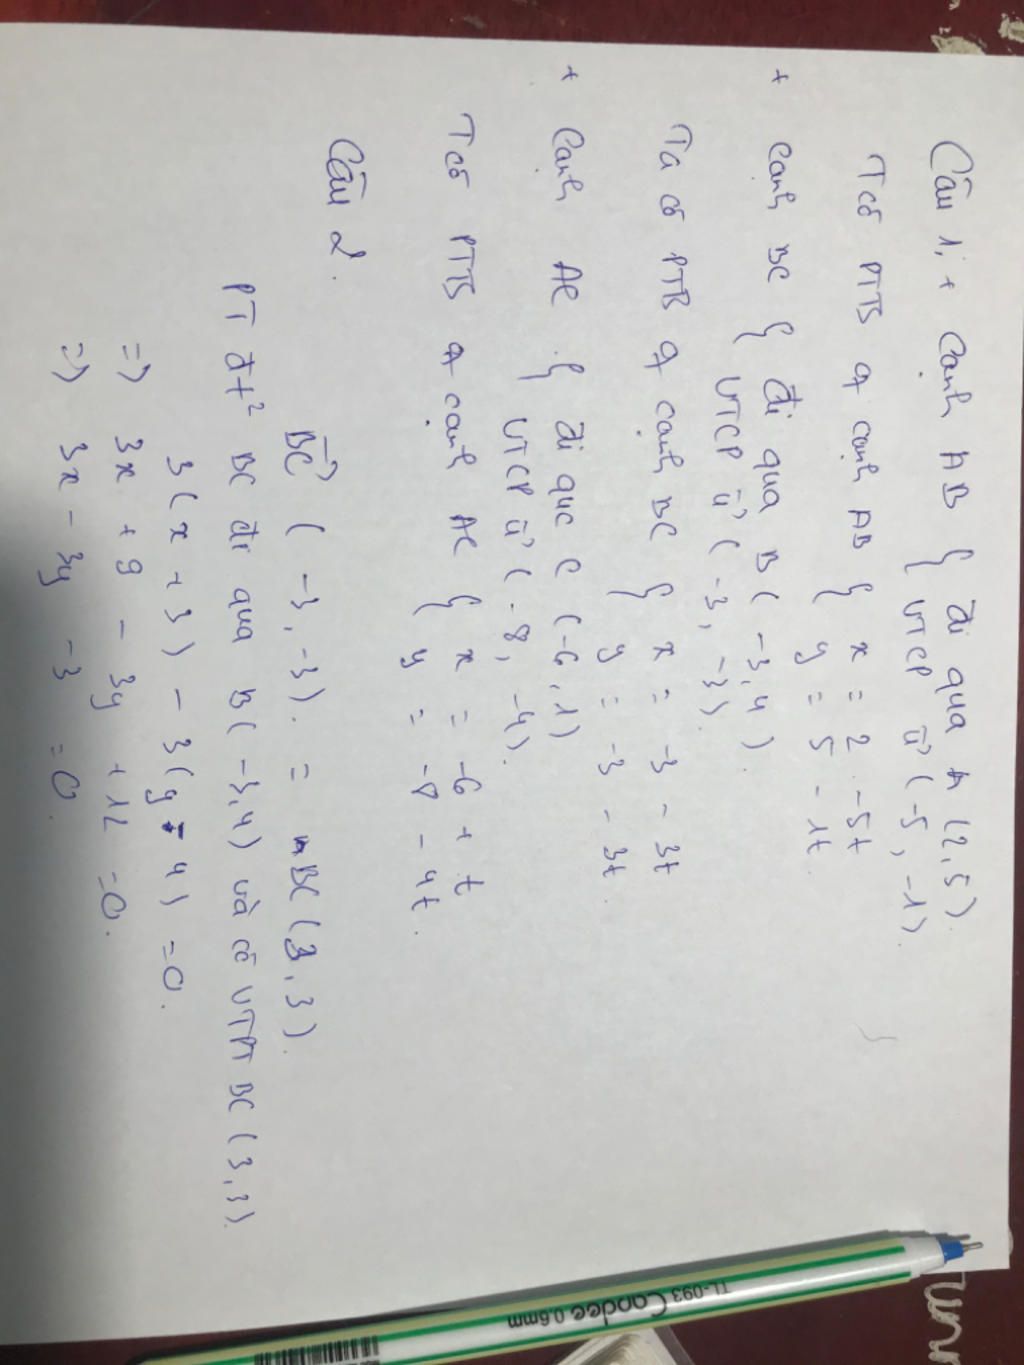 Câu 1, + Cạnh AB { đi qua A (2,5)
VTCP u→ (-5, -1).
Tcó PTTS q cạnh AB { x = 2 - 5t
y = 5 - 1t.
+ cạnh BC { đi qua B ( -3,4 )
VTCP u→ ( -3, -3).
Ta có PTTS q cạnh BC { x = -3 - 3t
y = -3 - 3t.
+ Cạnh AC { đi qua C (-6,1)
VTCP u→ ( -8, -4).
Tcó PTTS q cạnh AC { x = -6 + t
y = -8 - 4t.
Câu 2.
BC→ ( -3, -3). = nBC (3,3).
PT đt² BC đi qua B( -3,4) và có VTPT BC (3,3).
3(x + 3) - 3(y - 4) = 0.
=) 3x + 9 - 3y + 12 = 0.
=) 3x - 3y - 3 = 0.
TL-093 Candee 0.6mm